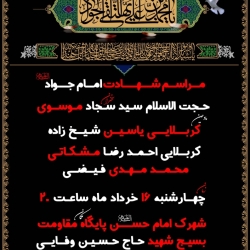 مراسم شهادت امام جواد
حجت الاسلام سید سجاد موسوی
کربلایی یاسین شیخ زاده
کربلایی احمد رضا مشکاتی
محمد مهدی فیضی
چهارشنبه ۱۶ خرداد ماه ساعت ۲۰
شهرک امام حسن پایگاه مقاومت
بسیج شهید حاج حسین وفایی